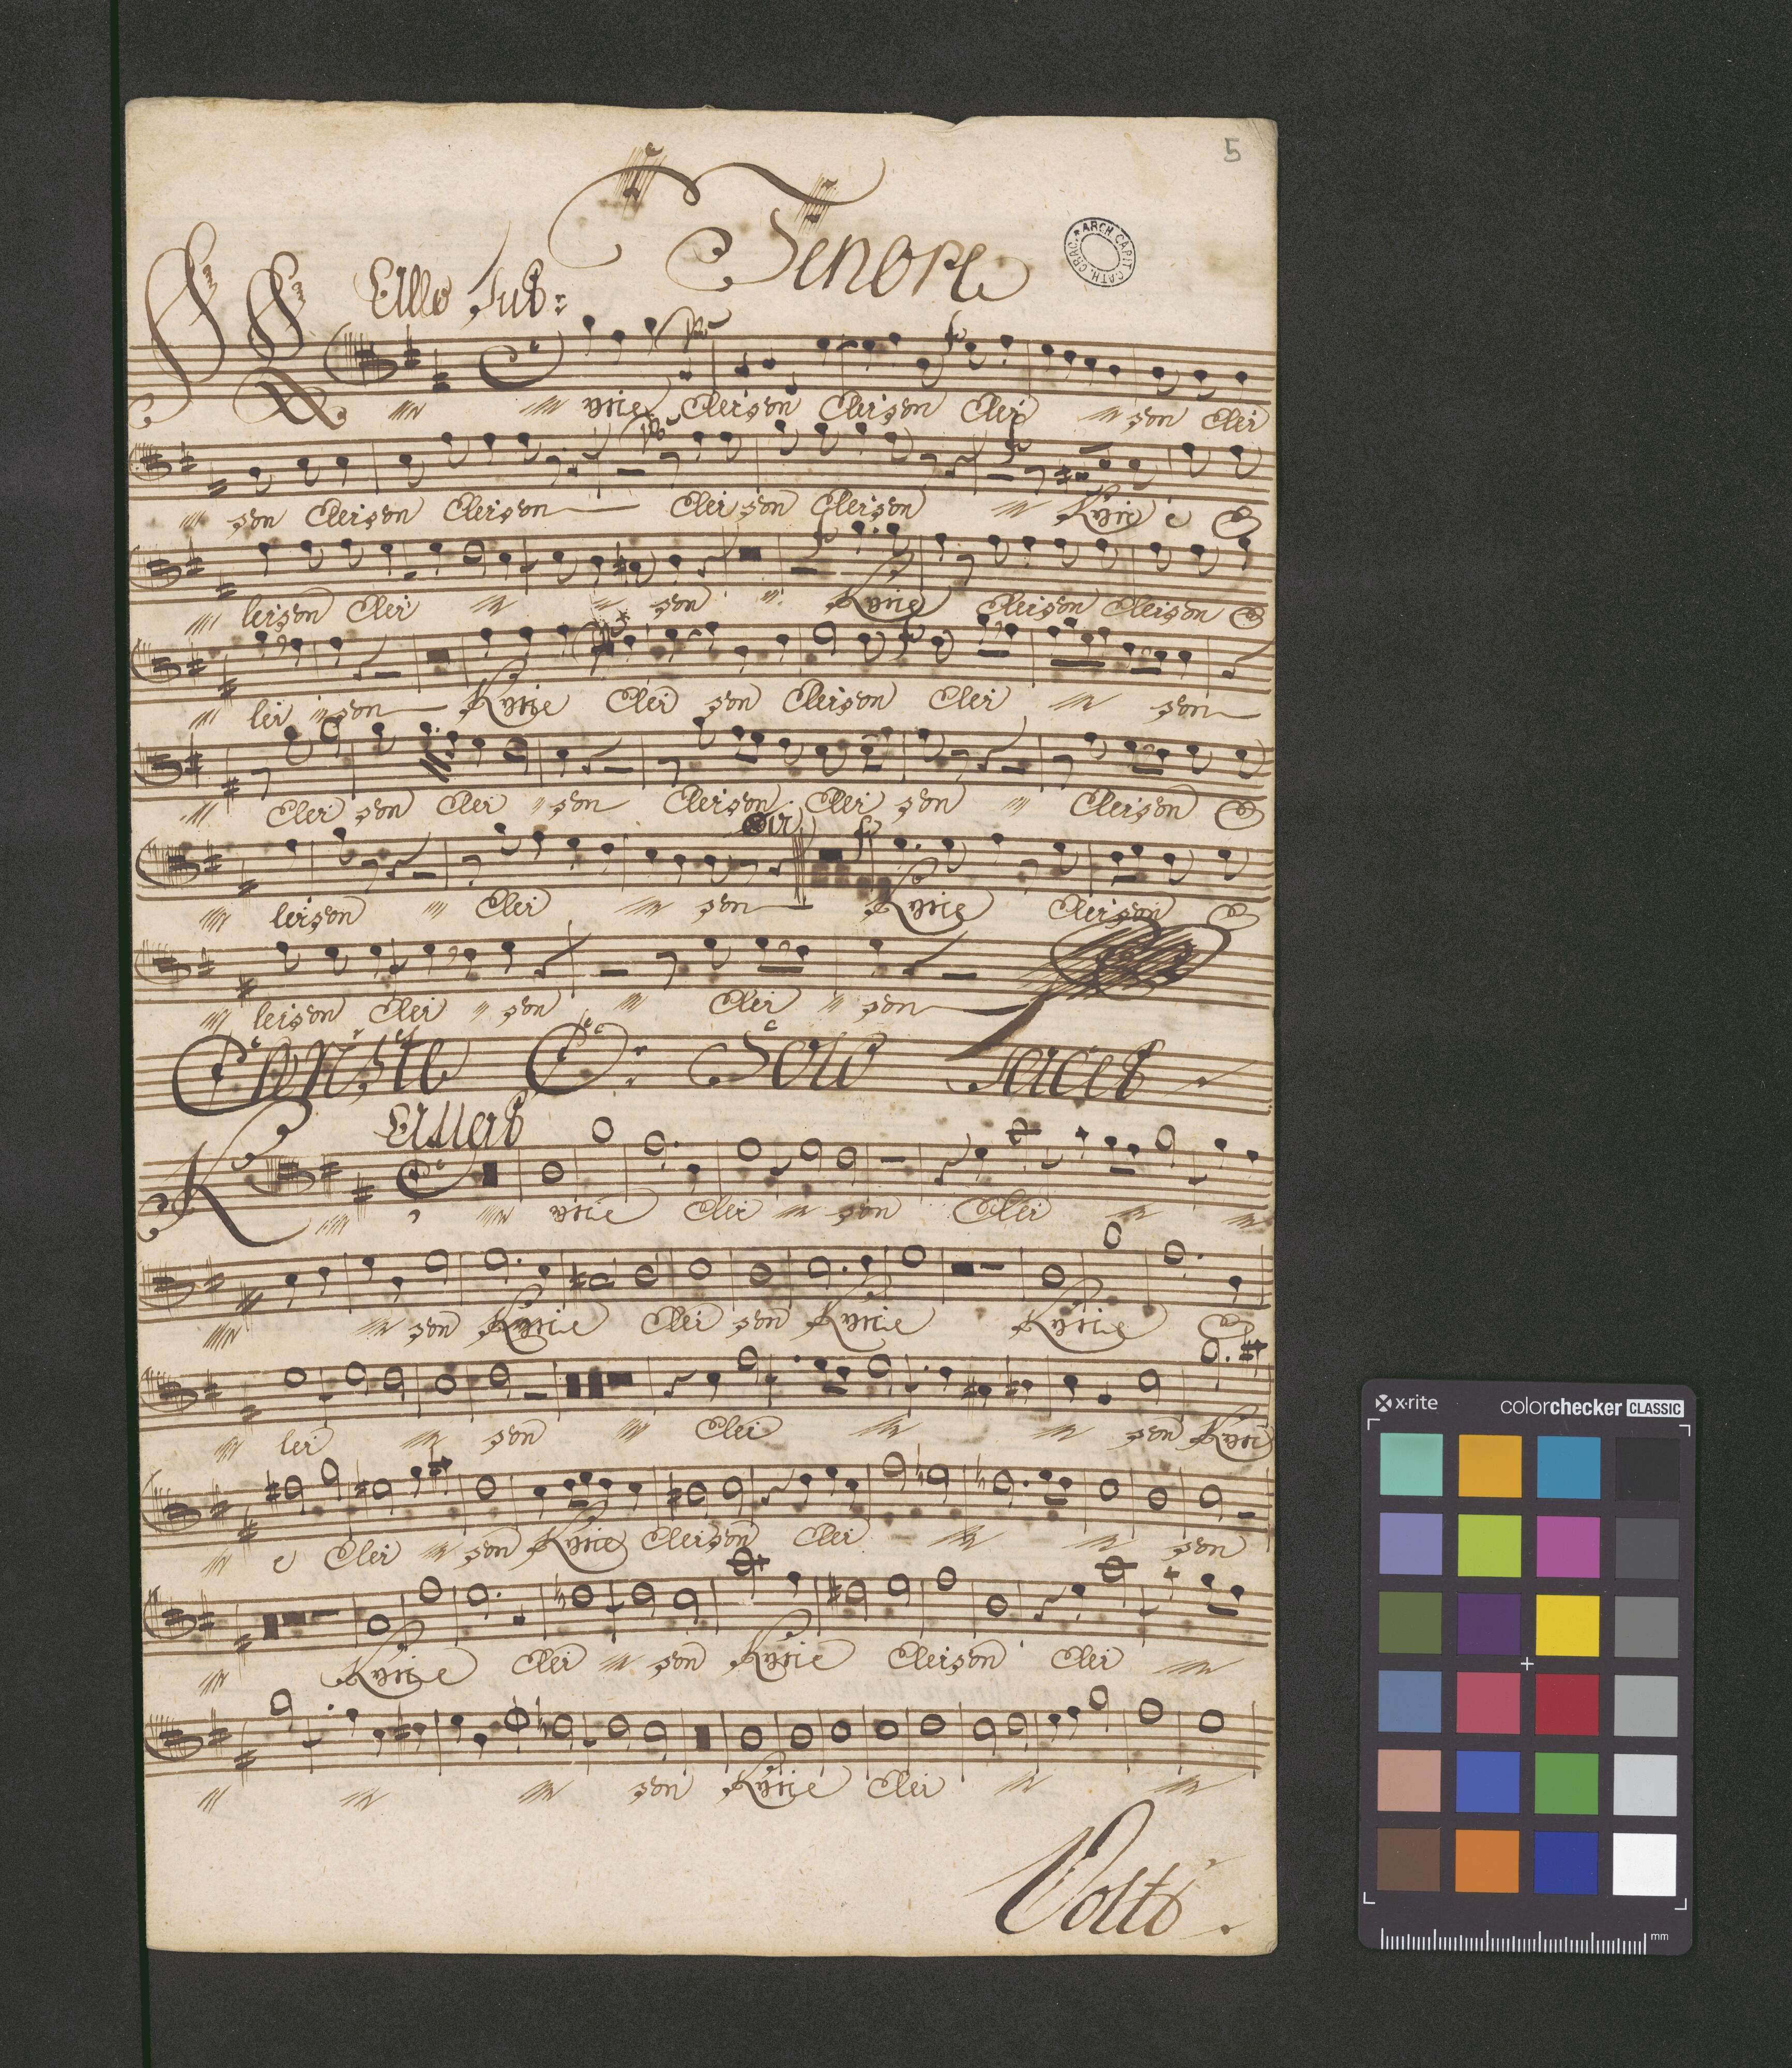 5
Tenore
ARCH. CAPIT. CATH. CRAC.
Kyrie Eleison Eleison Elei son Elei
son Eleison Eleison Elei son Eleison Kyrie e E
leison Elei son Kyrie Eleison Eleison E
lei son Kyrie Elei son Eleison Elei son
Elei son Elei son Eleison Elei son Eleison E
leison Elei son Kyrie Eleison E
leison Elei son Elei son
Christe Solo tacet
Kyrie Elei son Elei
son Kyrie Elei son Kyrie Kyrie E
lei son Elei son Kyri
e Elei son Kyrie Eleison Elei son
Kyrie Elei son Kyrie Eleison Elei
son Kyrie Elei
Volti
x-rite
colorchecker CLASSIC
mm